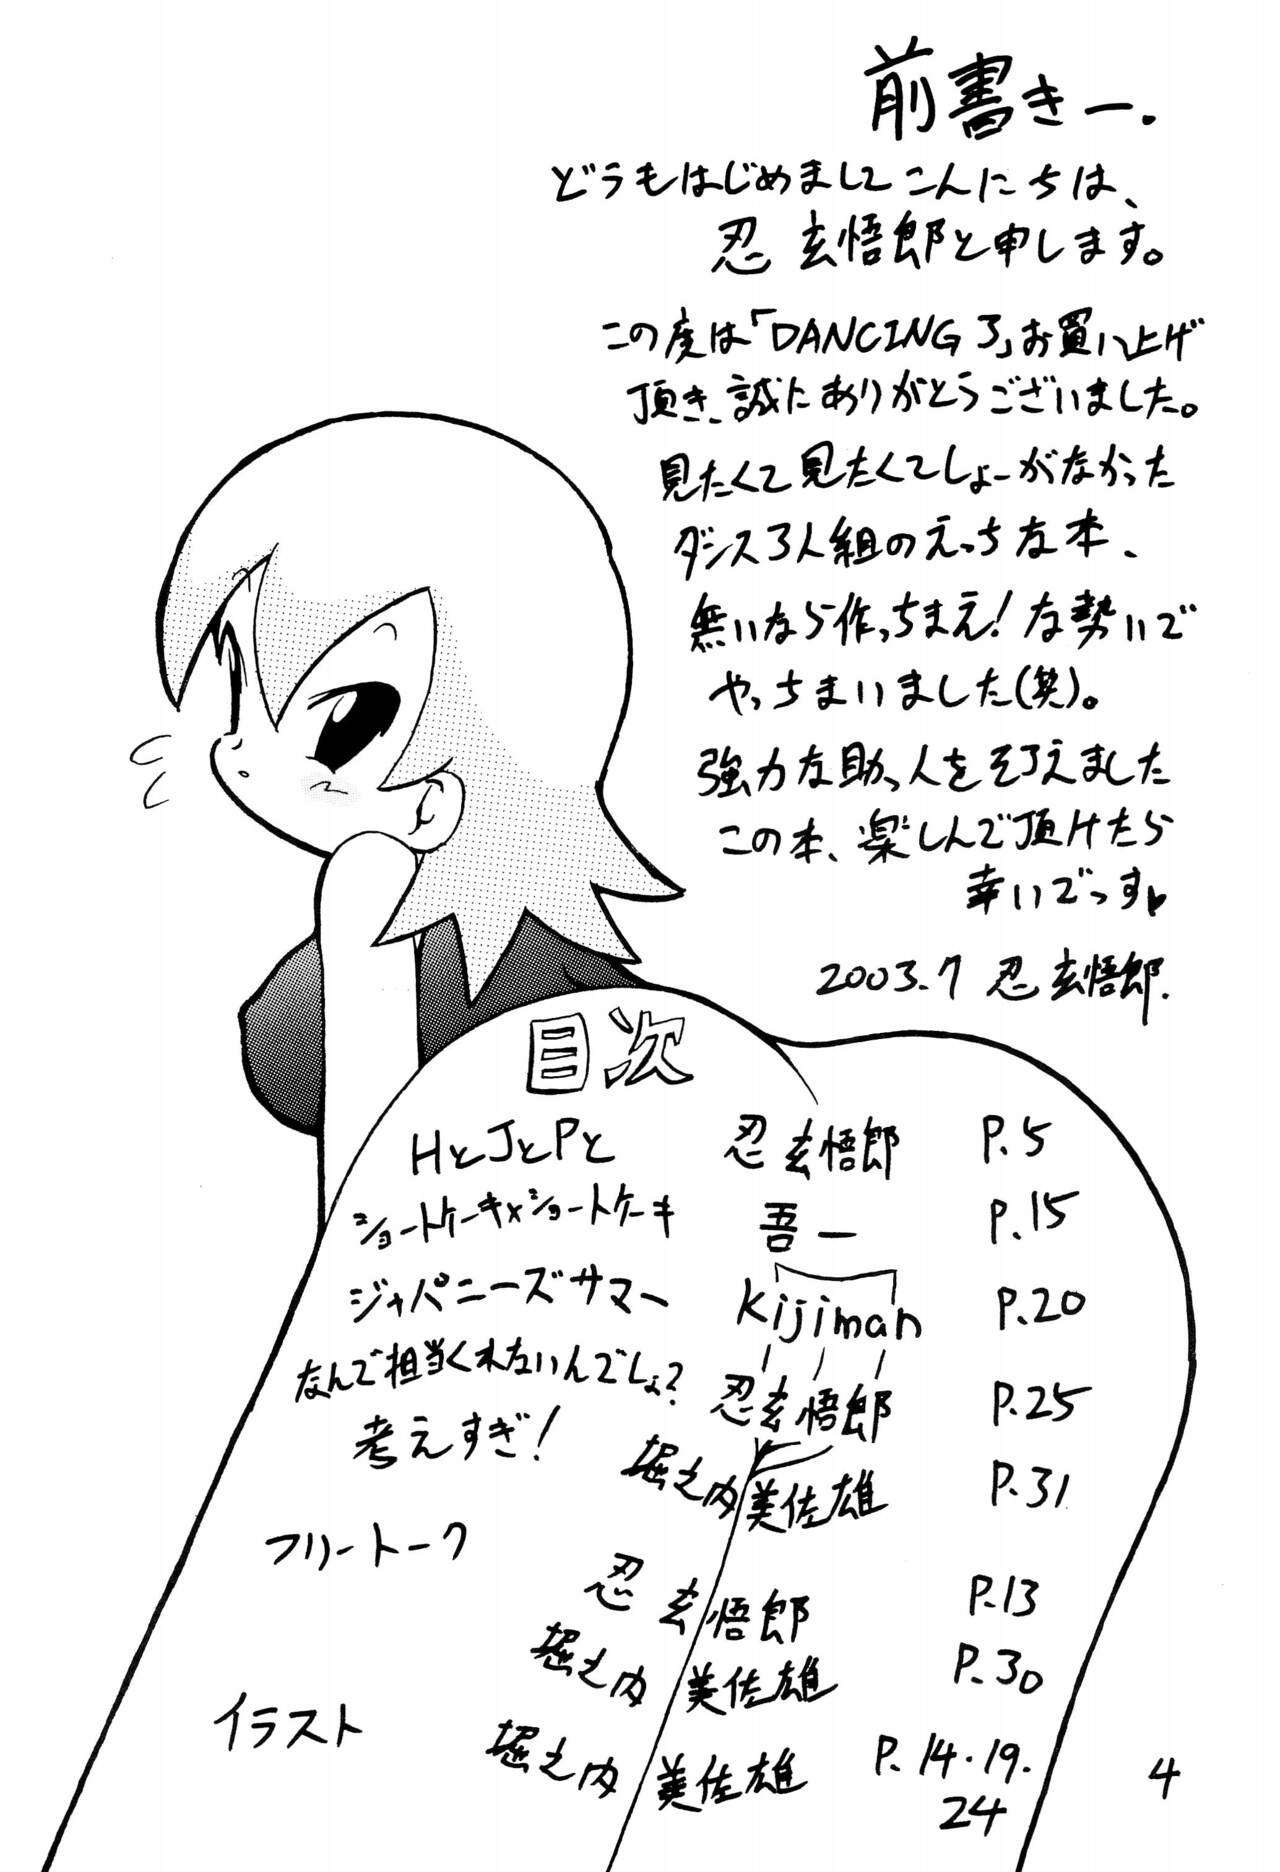 前書きー.
どうもはじめましてこんにちは、
忍 玄悟郎と申します。
この度は「DANCING 3」お買い上げ
頂き、誠にありがとうございました。
見たくて見たくてしょーがなかった
ダンス3人組のえっちな本、
無いなら作っちまえ!な勢いで
やっちまいました(笑)。
強力な助っ人をそろえました
この本、楽しんで頂けたら
幸いでっす♥
2003.7 忍 玄悟郎.
目次
HとJとPと 忍 玄悟郎 P.5
ショートケーキ×ショートケーキ 吾一 P.15
ジャパニーズサマー Kijiman P.20
なんで担当くれないんでしょ? 忍玄悟郎 P.25
考えすぎ! 堀之内 美佐雄 P.31
フリートーク
忍 玄悟郎 P.13
堀之内 美佐雄 P.30
イラスト 堀之内 美佐雄 P.14.19.
24
4